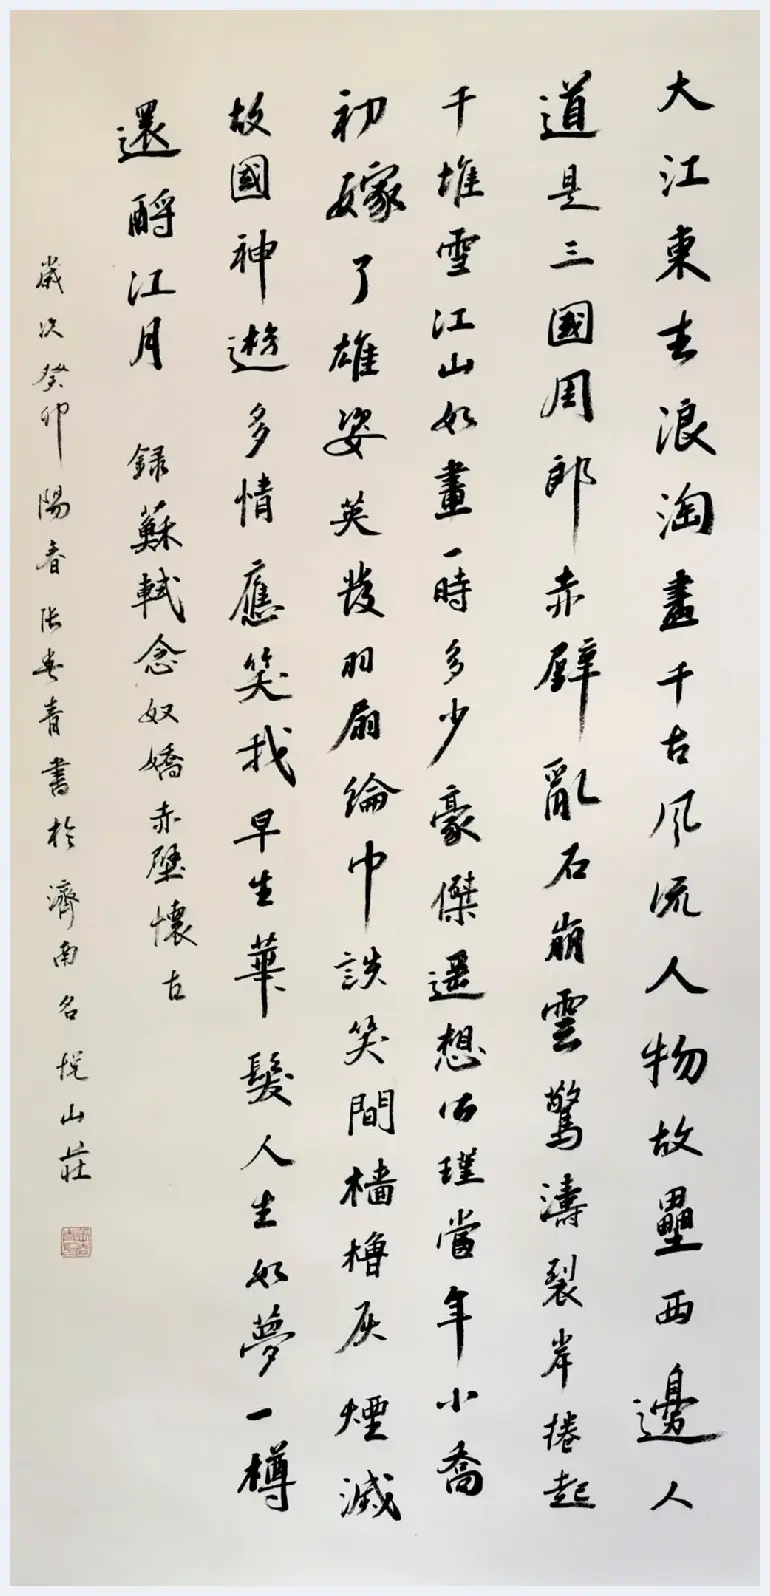 大江東去浪淘盡千古風流人物故壘西邊人
道是三國周郎赤壁亂石崩雲驚濤裂岸捲起
千堆雪江山如畫一時多少豪傑遥想公瑾當年小喬
初嫁了雄姿英發羽扇綸巾談笑間檣櫓灰煙滅
故國神遊多情應笑我早生華髮人生如夢一樽
還酹江月 録蘇軾念奴嬌赤壁懷古
歲次癸卯陽春張 青書於濟南名悦山莊